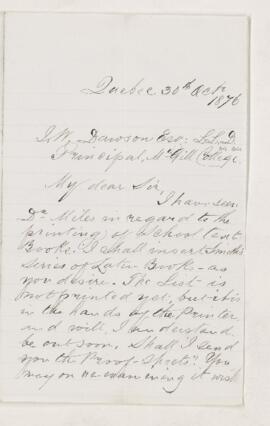 Quebec 30th Octr
1876
J. W. Dawson Esq: LL.D.
Principal, McGill College.
My dear Sir,
I have seen
Dr Miles in regard to the
printing of School text
Books. I shall insert Smith's
series of Latin Books - as
you desire. The List is
not printed yet, but it is
in the hands of the Printer
and will, I understand,
be out soon. Shall I send
you the Proof-Sheets? You
may on re-examining it wish